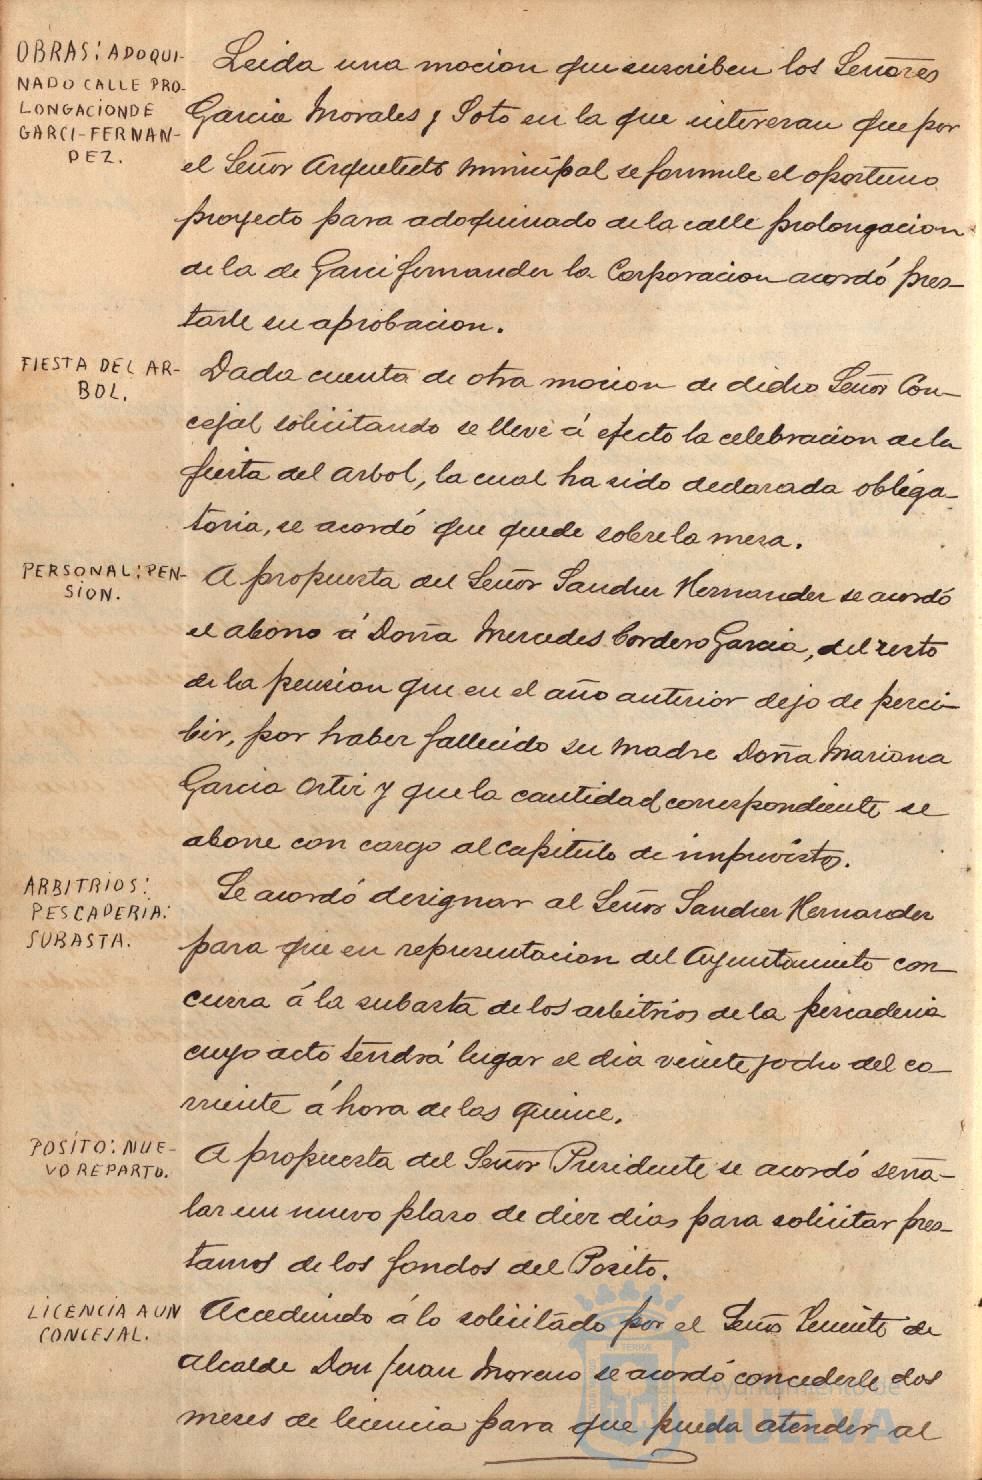 OBRAS: ADOQUI-
NADO CALLE PRO-
LONGACION DE
GARCI-FERNAN-
DEZ.
Leida una mocion que suscriben los Señores
Garcia Morales y Soto en la que interesan que por
el Señor Arquitecto municipal se formule el oportuno
proyecto para adoquinado de la calle prolongacion
de la de Garci fernandez la Corporacion acordó pres-
tarle su aprobacion.
FIESTA DEL AR-
BOL.
Dada cuenta de otra mocion de dicho Señor Con-
cejal solicitando se lleve á efecto la celebracion de la
fiesta del arbol, la cual ha sido declarada obliga-
toria, se acordó que quede sobre la mesa.
PERSONAL: PEN-
SION.
A propuesta del Señor Sanchez Hernandez se acordó
el abono á Doña Mercedes Cordero Garcia, del resto
de la pension que en el año anterior dejo de perci-
bir, por haber fallecido su madre Doña Mariana
Garcia Ortiz y que la cantidad correspondiente se
abone con cargo al capitulo de imprevistos.
ARBITRIOS:
PESCADERIA:
SUBASTA.
Se acordó designar al Señor Sanchez Hernandez
para que en representacion del Ayuntamiento con-
curra á la subasta de los arbitrios de la pescaderia
cuyo acto tendrá lugar el dia veinte y ocho del co-
rriente á hora de las quince.
POSITO: NUE-
VO REPARTO.
A propuesta del Señor Presidente se acordó seña-
lar un nuevo plazo de diez dias para solicitar pres-
tamos de los fondos del Posito.
LICENCIA A UN
CONCEJAL.
Accediendo á lo solicitado por el Señor Teniente de
Alcalde Don Juan Moreno se acordó concederle dos
meses de licencia para que pueda atender al
Ayuntamiento de
HUELVA